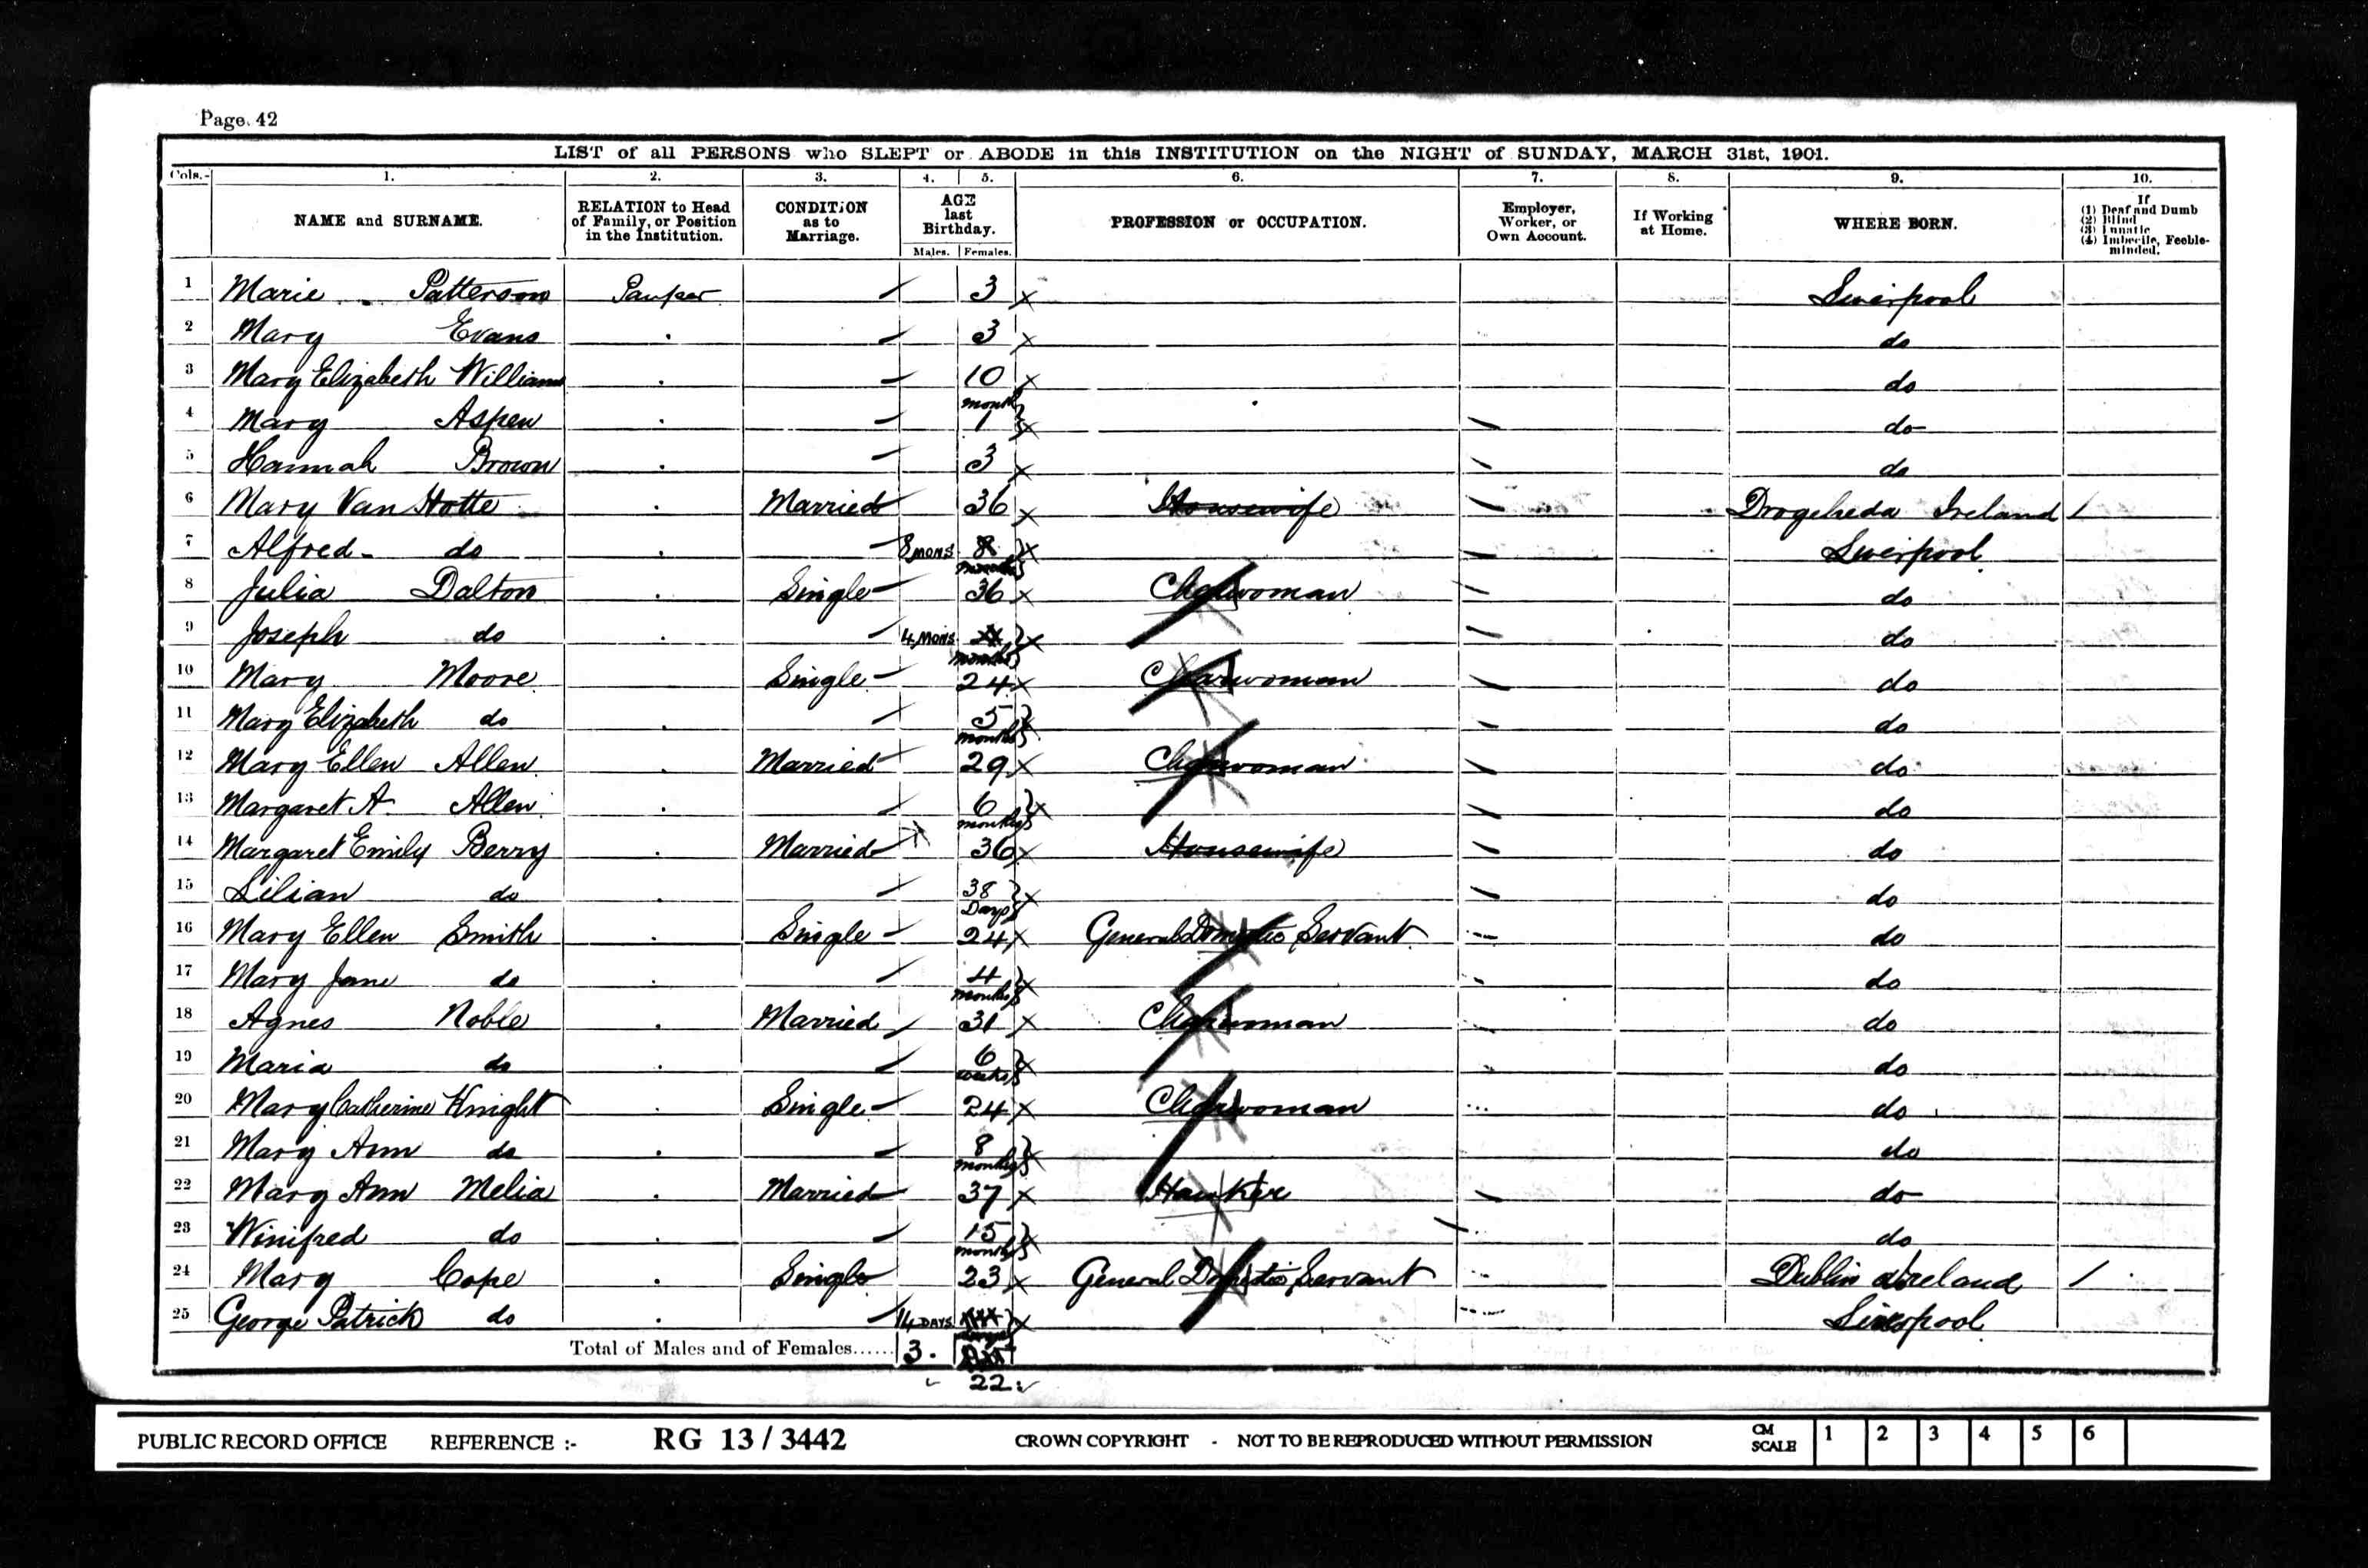 Page. 42
LIST of all PERSONS who SLEPT or ABODE in this INSTITUTION on the NIGHT of SUNDAY, MARCH 31st, 1901.
Cols.- 1. 2. 3. 4. 5. 6. 7. 8. 9. 10.
NAME and SURNAME. RELATION to Head of Family, or Position in the Institution. CONDITION as to Marriage. AGE last Birthday. Males. Females. PROFESSION or OCCUPATION. Employer, Worker, or Own Account. If Working at Home. WHERE BORN. If (1) Deaf and Dumb (2) Blind (3) Lunatic (4) Imbecile, Feeble-minded.
1 Marie Patterson Pauper 3 Liverpool
2 Mary Evans 3 do
3 Mary Elizabeth Williams 10 months do
4 Mary Aspen 1 do
5 Hannah Brown 3 do
6 Mary Van Hotte Married 36 Housewife Drogheda Ireland
7 Alfred do 8 MONS 8 months Liverpool
8 Julia Dalton Single 36 Charwoman do
9 Joseph do 4 MONS months do
10 Mary Moore Single 24 Charwoman do
11 Mary Elizabeth do 5 months do
12 Mary Ellen Allen Married 29 Charwoman do
13 Margaret A. Allen 6 months do
14 Margaret Emily Berry Married 36 Housewife do
15 Lilian do 38 Days do
16 Mary Ellen Smith Single 24 General Domestic Servant do
17 Mary Jane do 4 months do
18 Agnes Noble Married 31 Charwoman do
19 Maria do 6 weeks do
20 Mary Catherine Knight Single 24 Charwoman do
21 Mary Ann do 8 months do
22 Mary Ann Melia Married 37 Hawker do
23 Winifred do 15 months do
24 Mary Cope Single 23 General Domestic Servant Dublin Ireland
25 George Patrick do 14 DAYS Liverpool
Total of Males and of Females...... 3.
22
PUBLIC RECORD OFFICE REFERENCE :- RG 13 / 3442 CROWN COPYRIGHT - NOT TO BE REPRODUCED WITHOUT PERMISSION CM SCALE 1 2 3 4 5 6